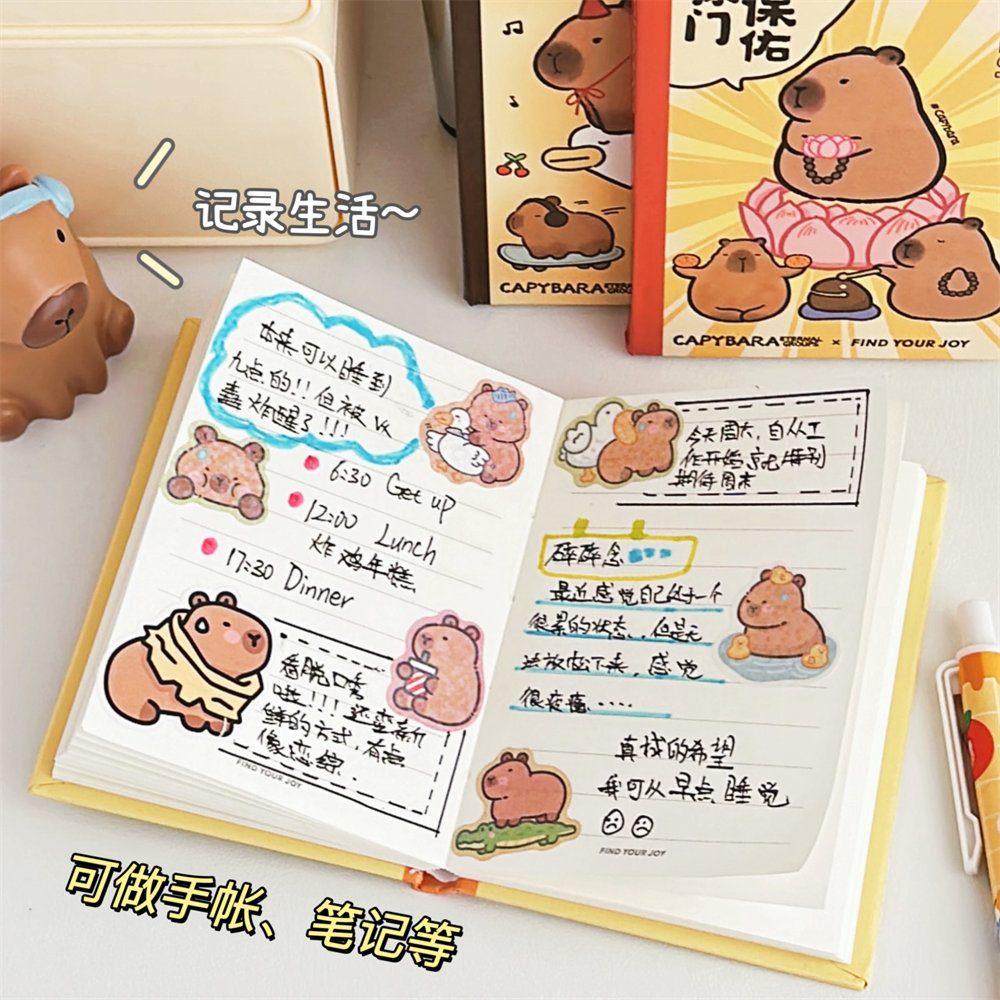 保佑
门
#Capybara
CAPYBARA
CAPYBARA ETERNAL GROUPS × FIND YOUR JOY
记录生活~
本来可以睡到
九点的!!但被VK
轰炸醒了!!!
6:30 Get up
12:00 Lunch
炸鸡年糕
17:30 Dinner
看脱口秀
哦!!!还蛮新
鲜的方式,有点
像恋综.
FIND YOUR JOY
今天周六,自从工
作开始就特别
期待周末
碎碎念
最近感觉自己处于一个
很累的状态,但是无
法放松下来,感觉
很疲惫......
真找的希望
我可以早点睡觉
FIND YOUR JOY
可做手帐、笔记等